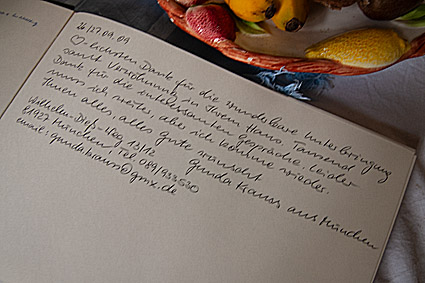 26/27.09.09
♡-lichsten Dank für die wunderbare Unterbringung
samt Verwöhnung in Ihrem Haus. Tausend
Dank für die interessanten Gespräche. Leider
muss ich weiter, aber ich komme wieder.
Ihnen alles, alles gute wünscht
Gunda Krauss aus München
Wilhelm-Dieß-Weg 13/12
81927 München, Tel. 089/933530
email: gundakrauss@gmx.de